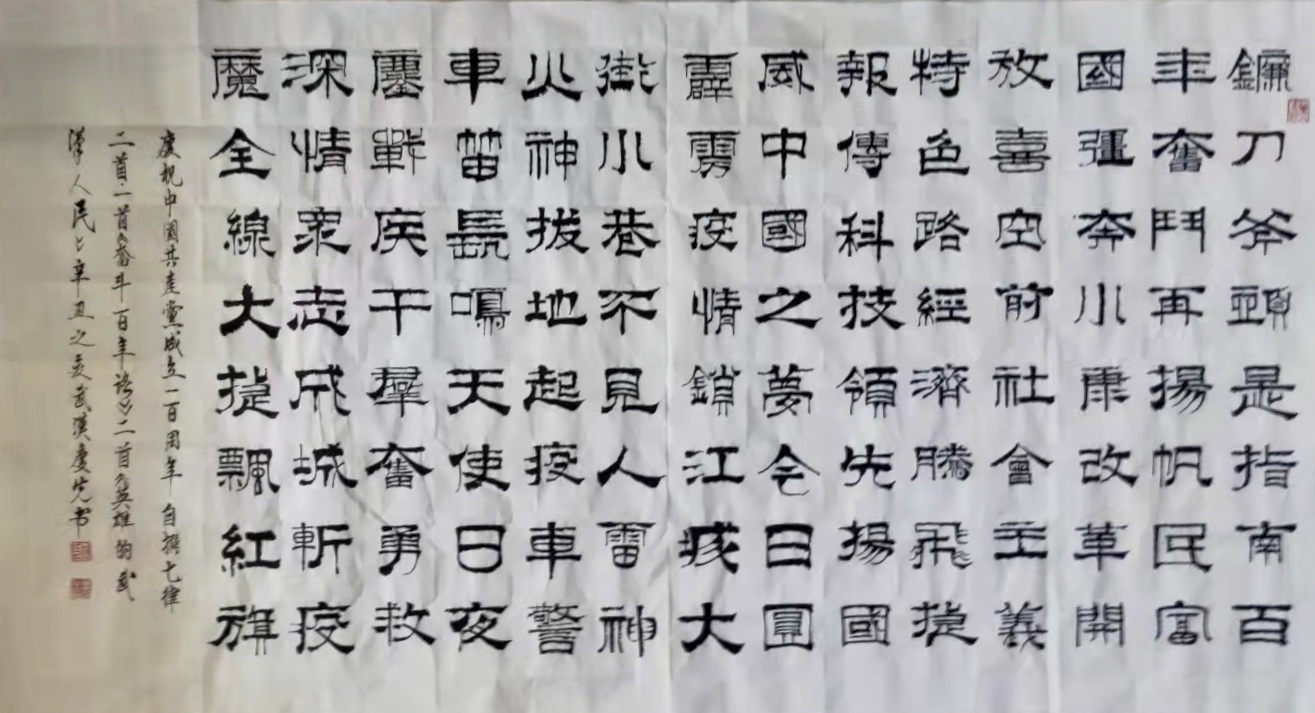 鐮刀斧頭是指南百
年奮鬥再揚帆民富
國彊奔小康改革開
放喜空前社會主義
特色路經濟騰飛捷
報傳科技領先揚國
威中國之夢今日圓
霹雳疫情鎖江城大
街小巷不見人雷神
火神拔地起疫車警
車笛長鳴天使日夜
鏖戰疾干羣奮勇救
深情眾志成城斬疫
魔全線大捷飄紅旗
慶祝中國共産黨成立一百周年 自撰七律
二首一首《奮斗百年路》二首《英雄的武
漢人民》辛丑之夏武漢慶先书